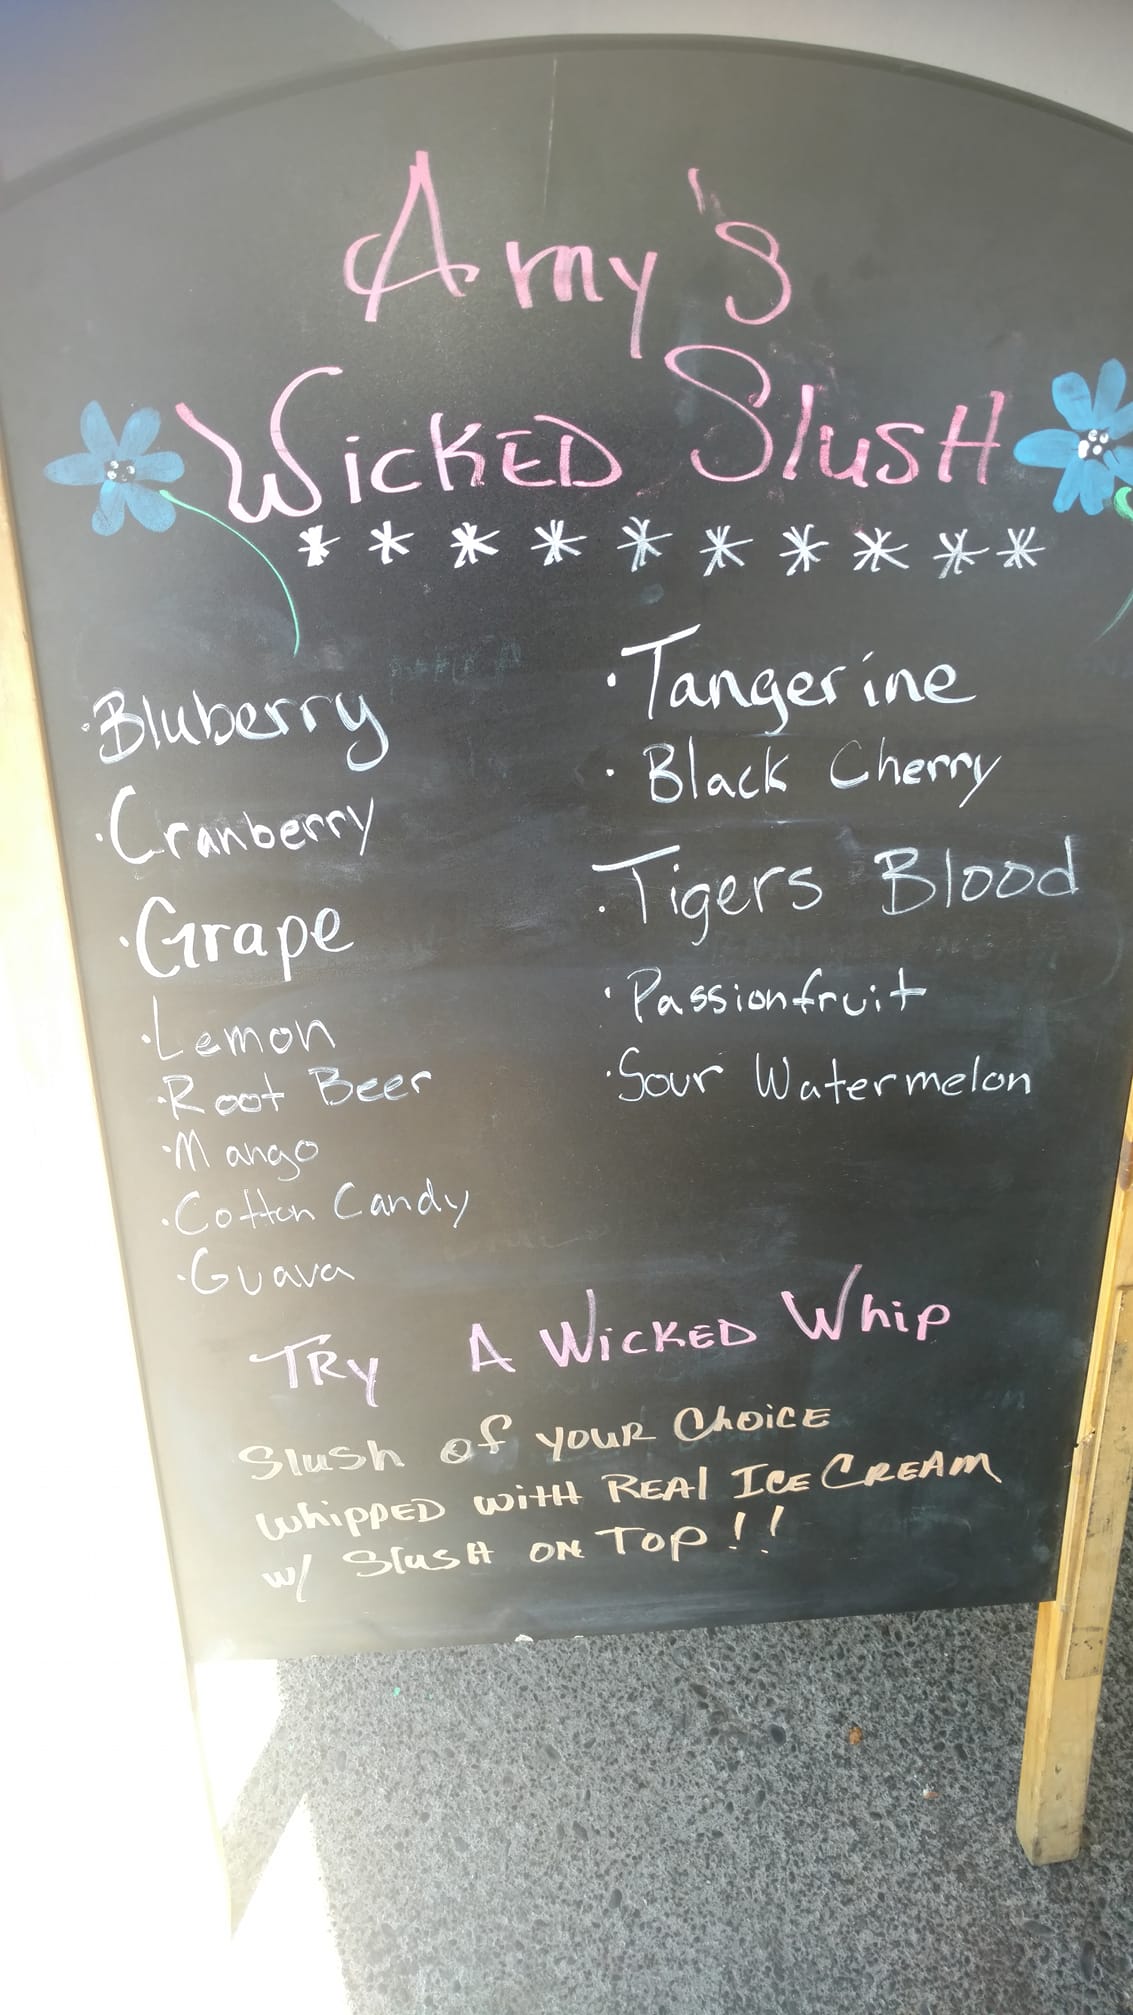 Amy's
Wicked Slush
* * * * * * * * * *
·Bluberry
·Cranberry
·Grape
·Lemon
·Root Beer
·Mango
·Cotton Candy
·Guava
·Tangerine
·Black Cherry
·Tigers Blood
·Passionfruit
·Sour Watermelon
TRY A WICKED Whip
Slush of YOUR CHOICE
WHIPPED WITH REAl ICE CREAM
w/ SlusH ON TOP!!